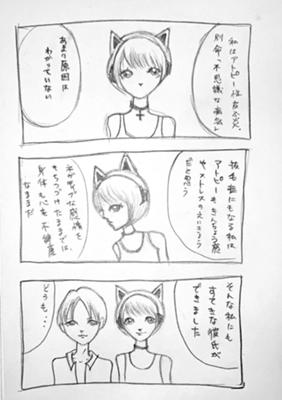 私はアトピー性皮ふ炎。
別命「不思議な病気」
あまり原因は
わかっていない
抜毛症にもなる私は
アトピーもきんちょう感
やストレスのえいきょう
だと思う
ネガティブな感情を
もちつづけたままでは、
身体も心も不健康
なままだ
そんな私にも
すてきな彼氏が
できました
どうも・・・